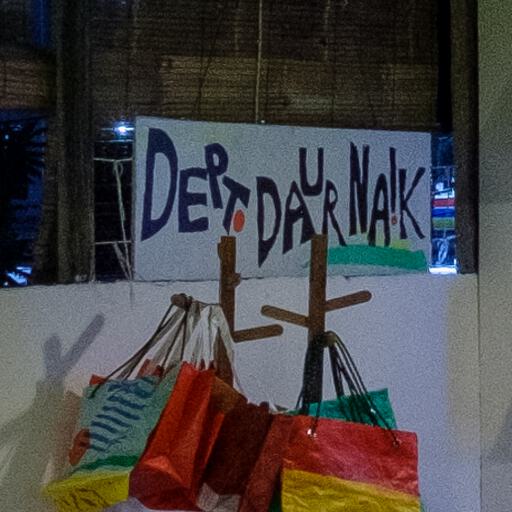 DEPT. DAUR NAIK